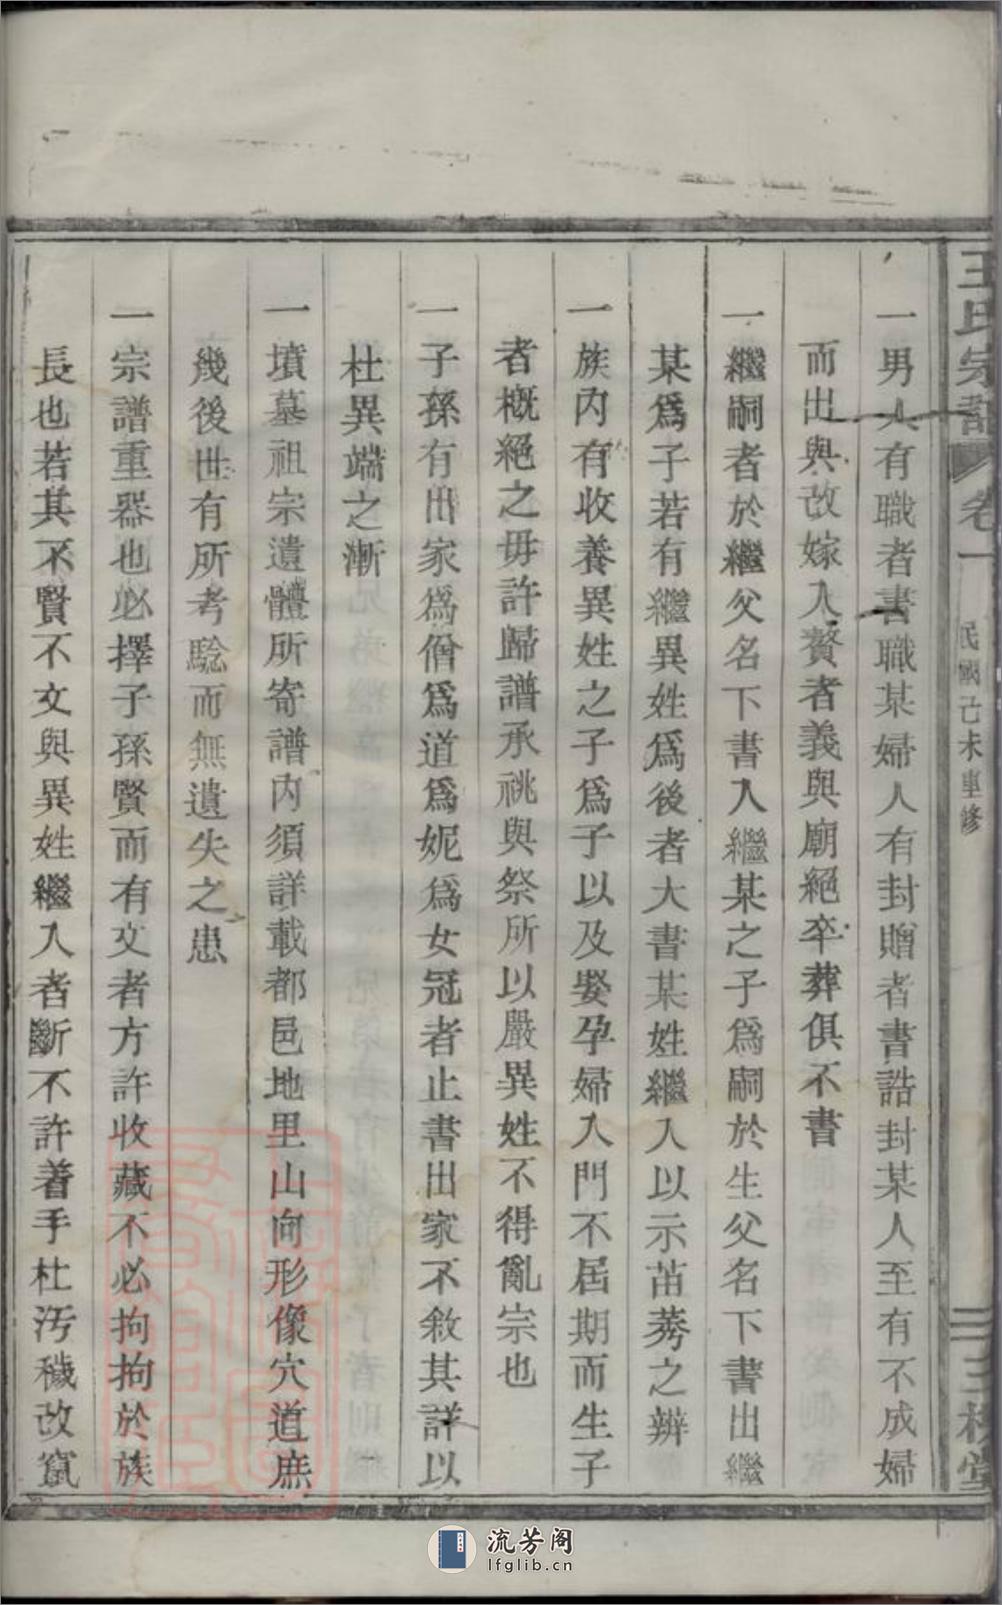 王氏宗譜 卷一 民國己未重修 三槐堂
一男人有職者書職某婦人有封贈者書誥封某人至有不成婦
而出與改嫁入贅者義與廟絕卒葬俱不書
一繼嗣者於繼父名下書入繼某之子爲嗣於生父名下書出繼
某爲子若有繼異姓爲後者大書某姓繼入以示苗莠之辨
一族內有收養異姓之子爲子以及娶孕婦入門不居期而生子
者概絕之毋許歸譜承祧與祭所以嚴異姓不得亂宗也
一子孫有出家爲僧爲道爲妮爲女冠者止書出家不敘其詳以
杜異端之漸
一墳墓祖宗遺體所寄譜內須詳載都邑地里山向形像穴道庶
幾後世有所考騐而無遺失之患
一宗譜重器也必擇子孫賢而有文者方許收藏不必拘拘於族
長也若其不賢不文與異姓繼入者斷不許着手杜汚穢改竄
流芳阁
lfglib.cn